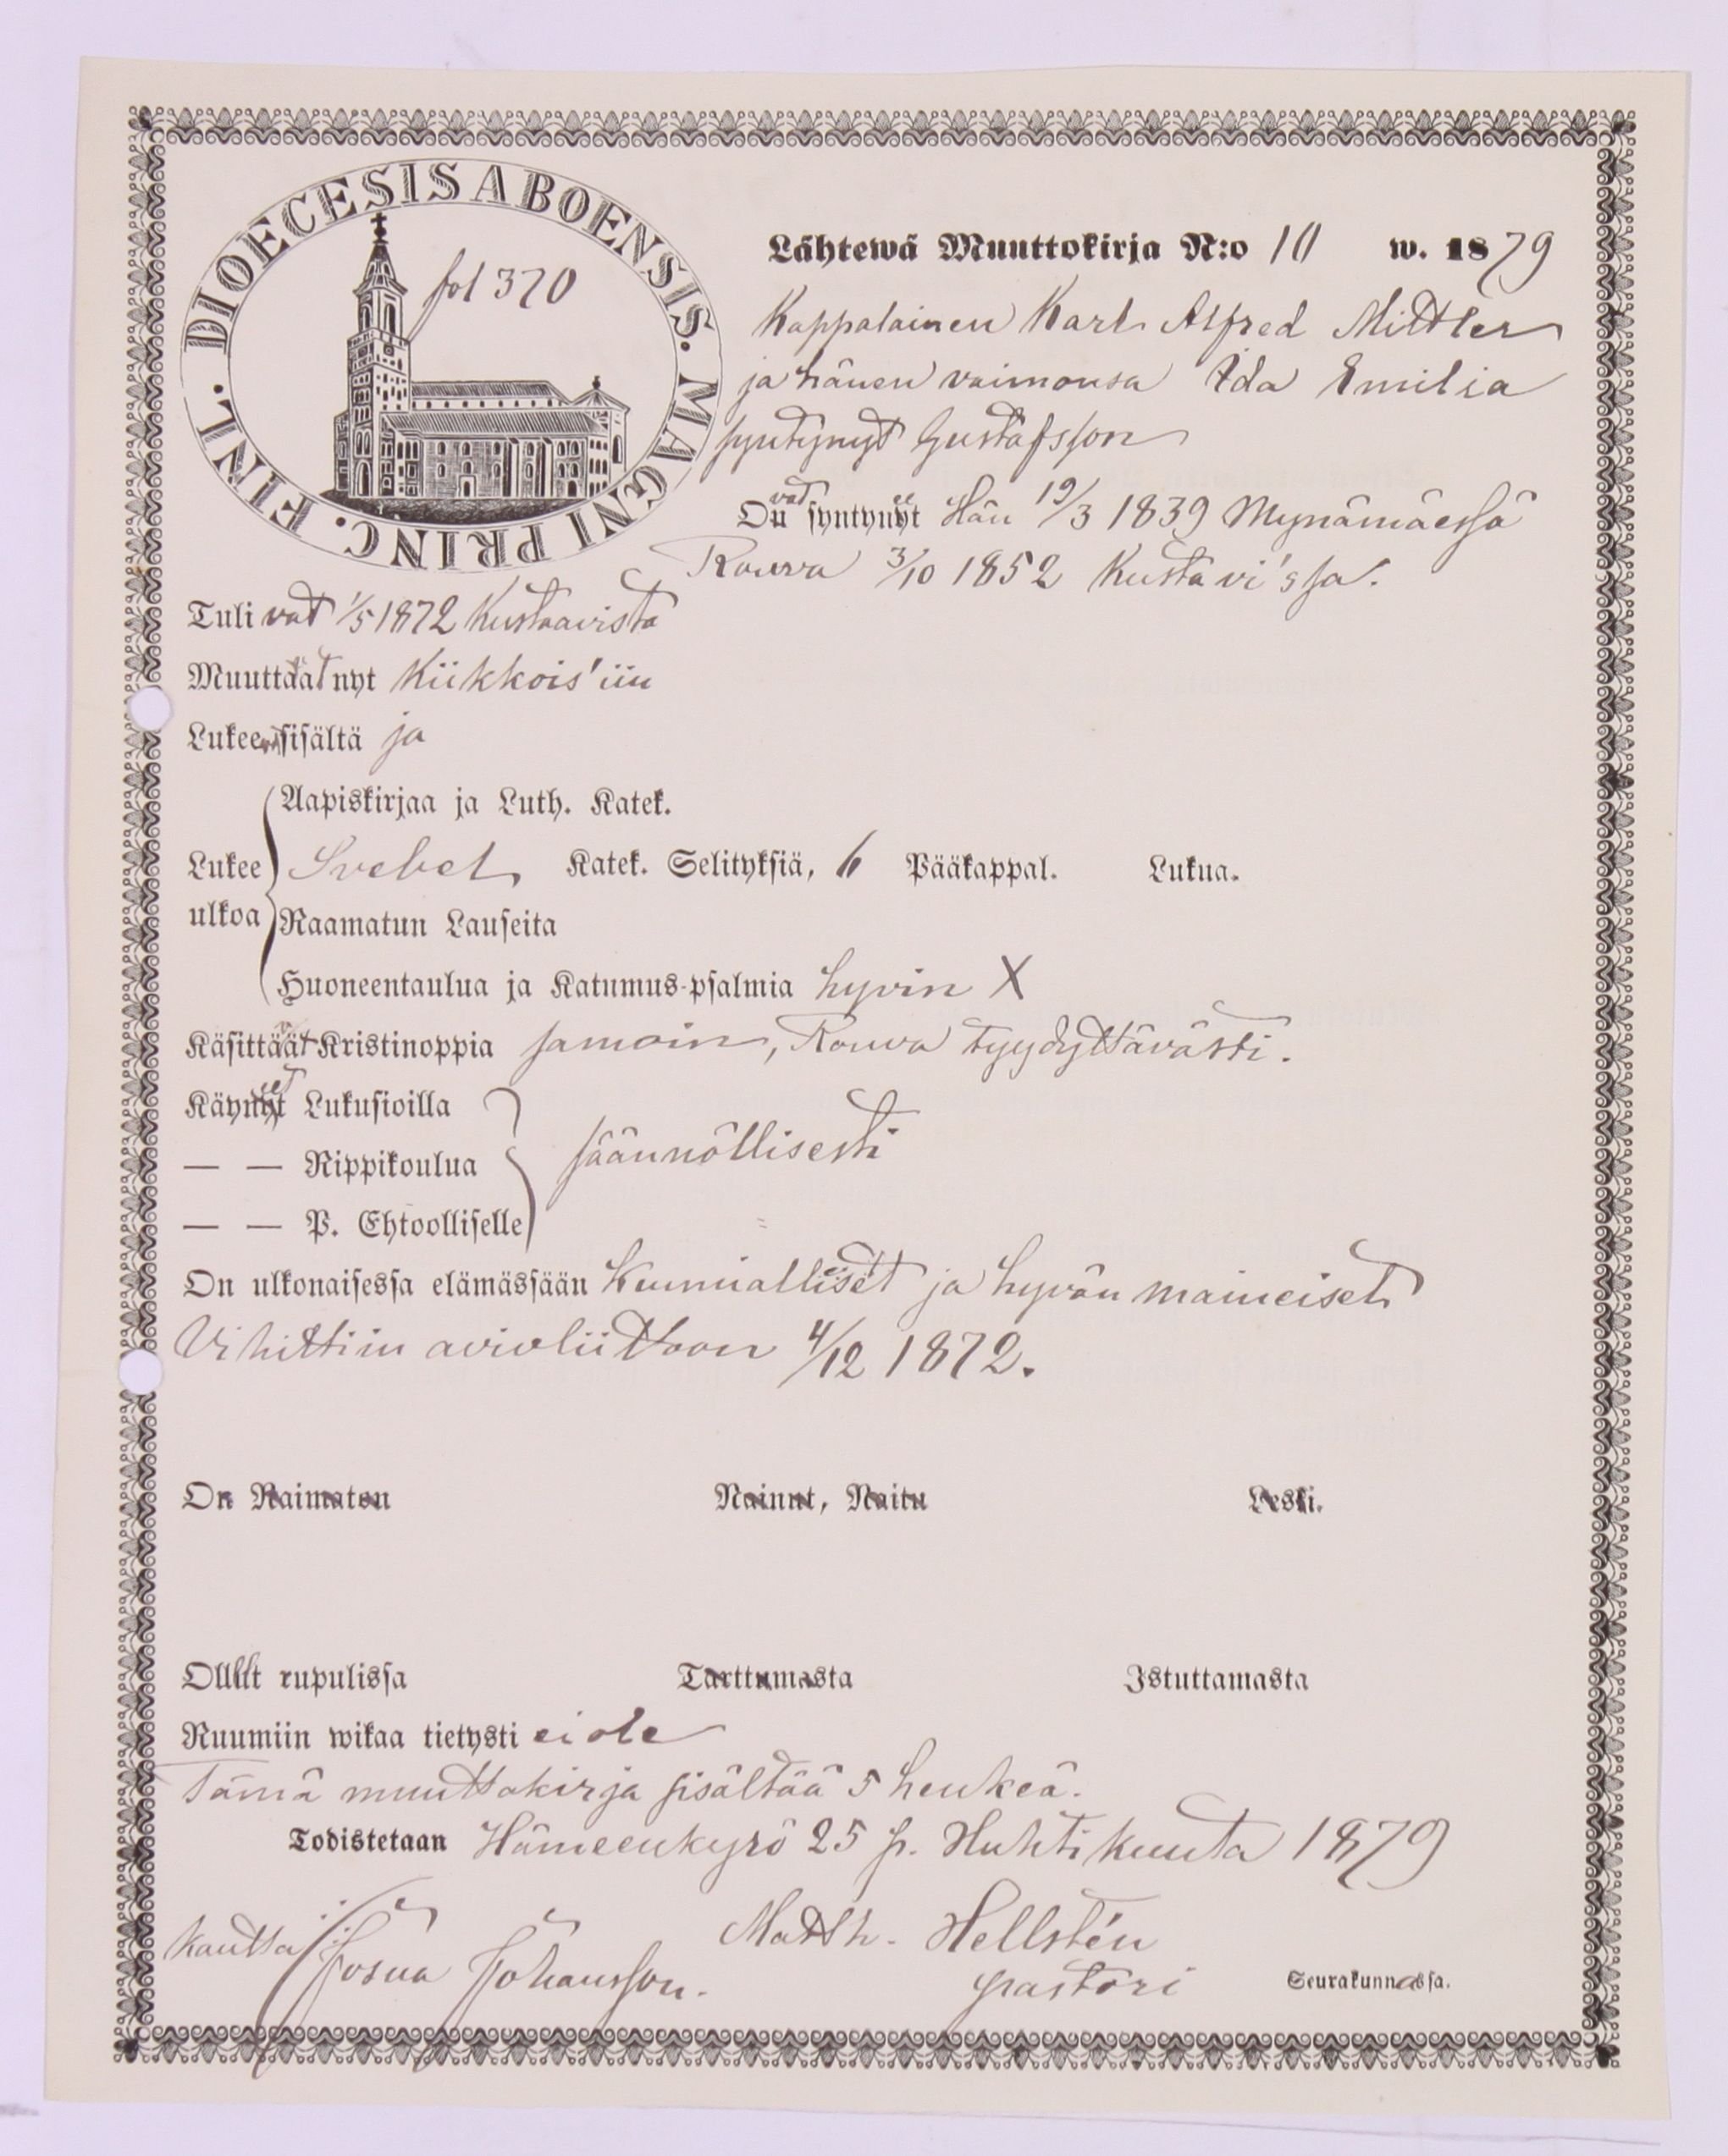 DIOECESIS ABOENSIS. MAGNI PRINC. FINL.
fol 370
Lähtewä Muuttokirja N:o 10 w. 1879
Kappalainen Karl Alfred Mittler
ja hänen vaimonsa Ida Emilia
syntynyt Gustafsson
Ovat syntyneet Hän 19/3 1839 Mynämäessä
Rouva 3/10 1852 Kustavi'ssa.
Tulivat 1/5 1872 Kustaavista
Muuttavat nyt Kiikkois'iin
Lukevat sisältä ja
Aapiskirjaa ja Luth. Katek.
Lukee ulkoa Svebel. Katek. Selityksiä, 6 Pääkappal. Lukua.
Raamatun Lauseita
Huoneentaulua ja Katumus-psalmia hyvin X
Käsittävät Kristinoppia samoin, Rouva tyydyttävästi.
Käyneet Lukusioilla
— — Rippikoulua säännöllisesti
— — P. Ehtoolliselle
On ulkonaisessa elämässään kunnialliset ja hyvän maineiset
Vihittiin avioliittoon 4/12 1872.
On Naimaton Nainut, Naitu Leski.
Ollut rupulissa Tarttumasta Istuttamasta
Ruumiin wikaa tietysti ei ole
Tämä muuttokirja sisältää 5 henkeä.
Todistetaan Hämeenkyrö 25 p. Huhtikuuta 1879
Matth. Hellstén
kautta Josua Johansson.
pastori Seurakunnassa.